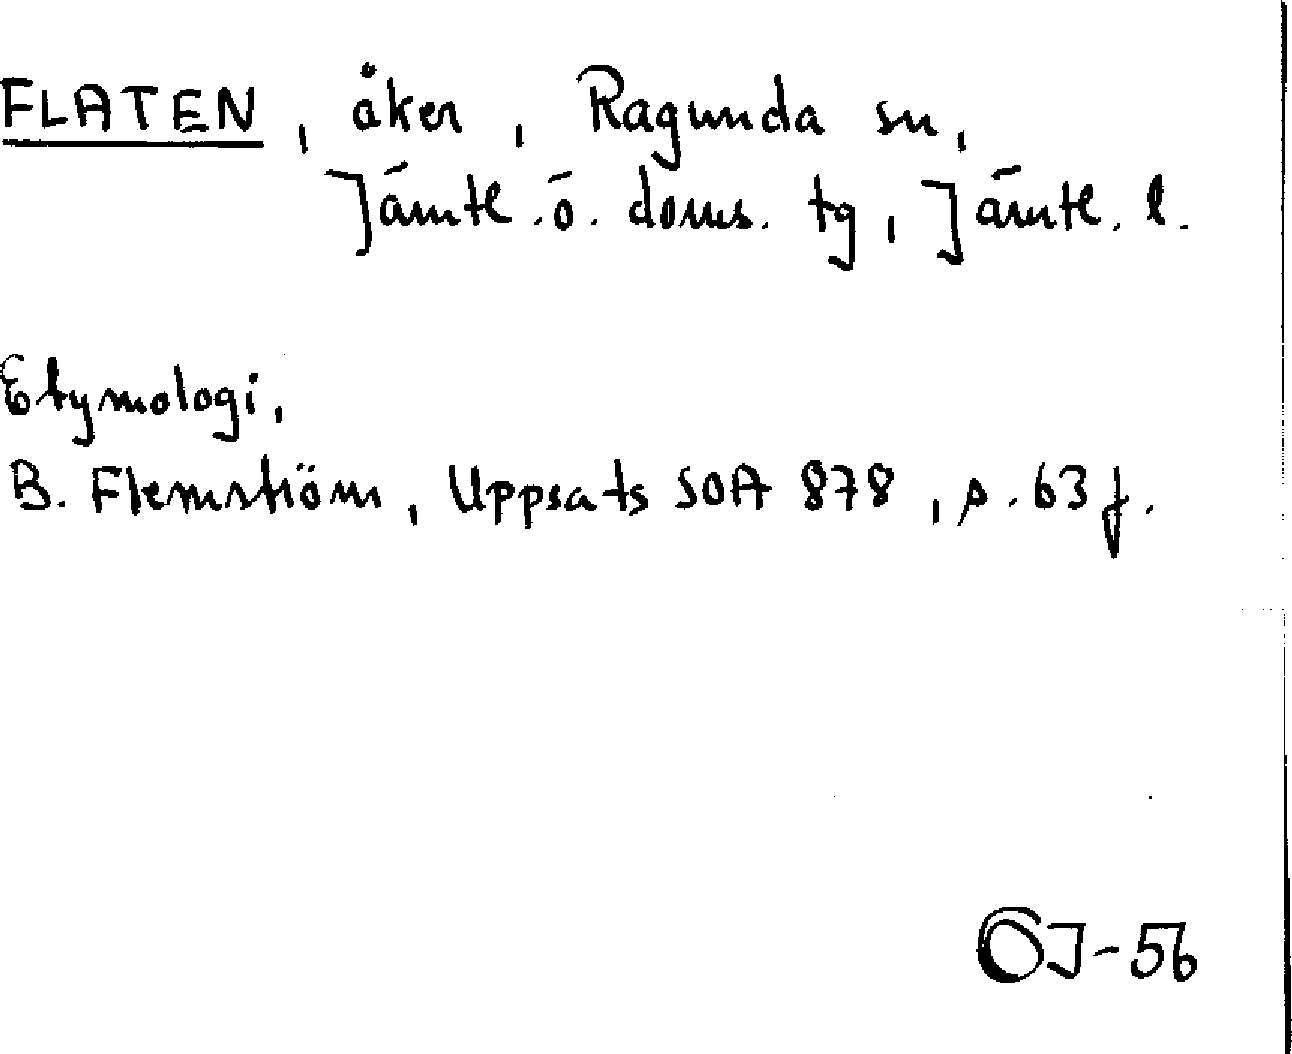 FLATEN, åker, Ragunda sn,
Jämtl. ö. doms. tg, Jämtl. l.
Etymologi,
B. Flemström, Uppsats SOA 878, s. 63 f.
OJ-56